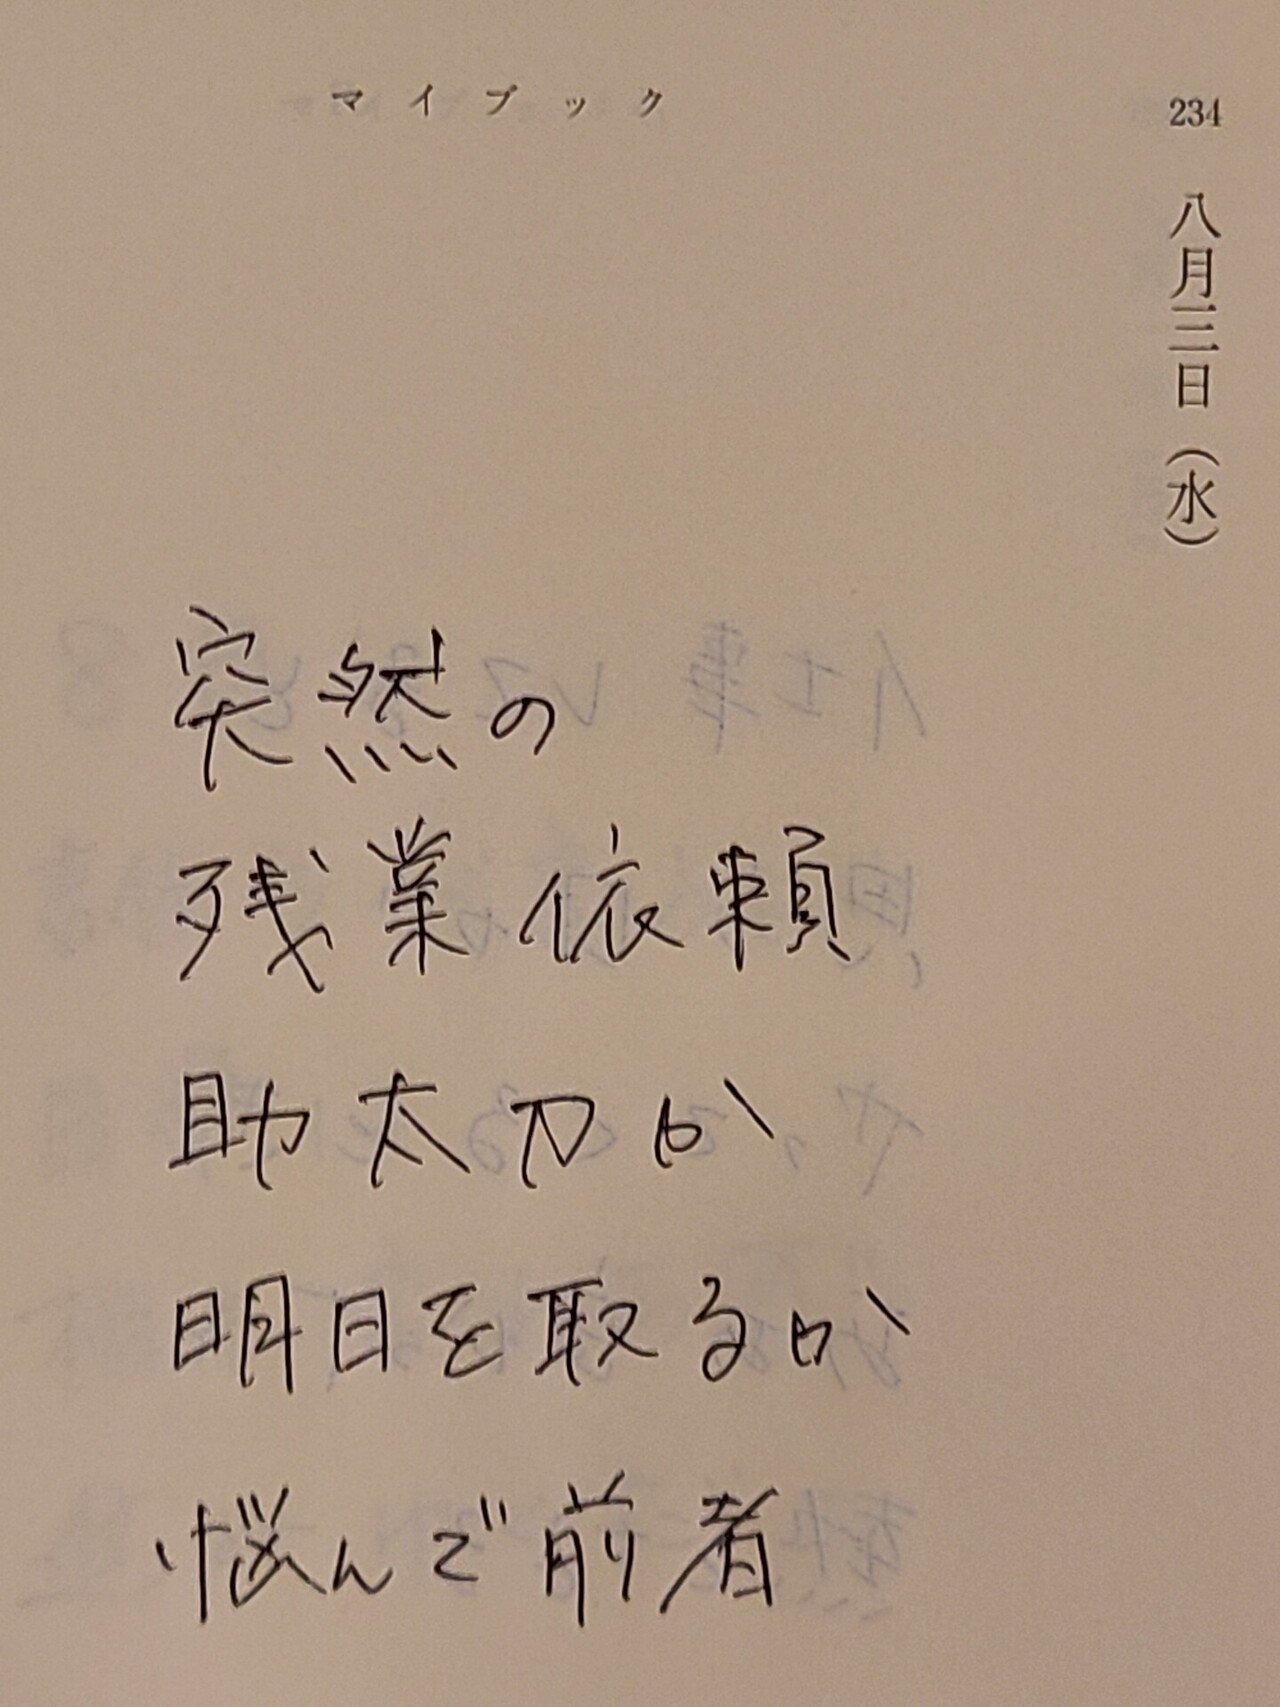 マイブック
234
八月三日(水)
突然の
残業依頼
助太刀か
明日を取るか
悩んで前者